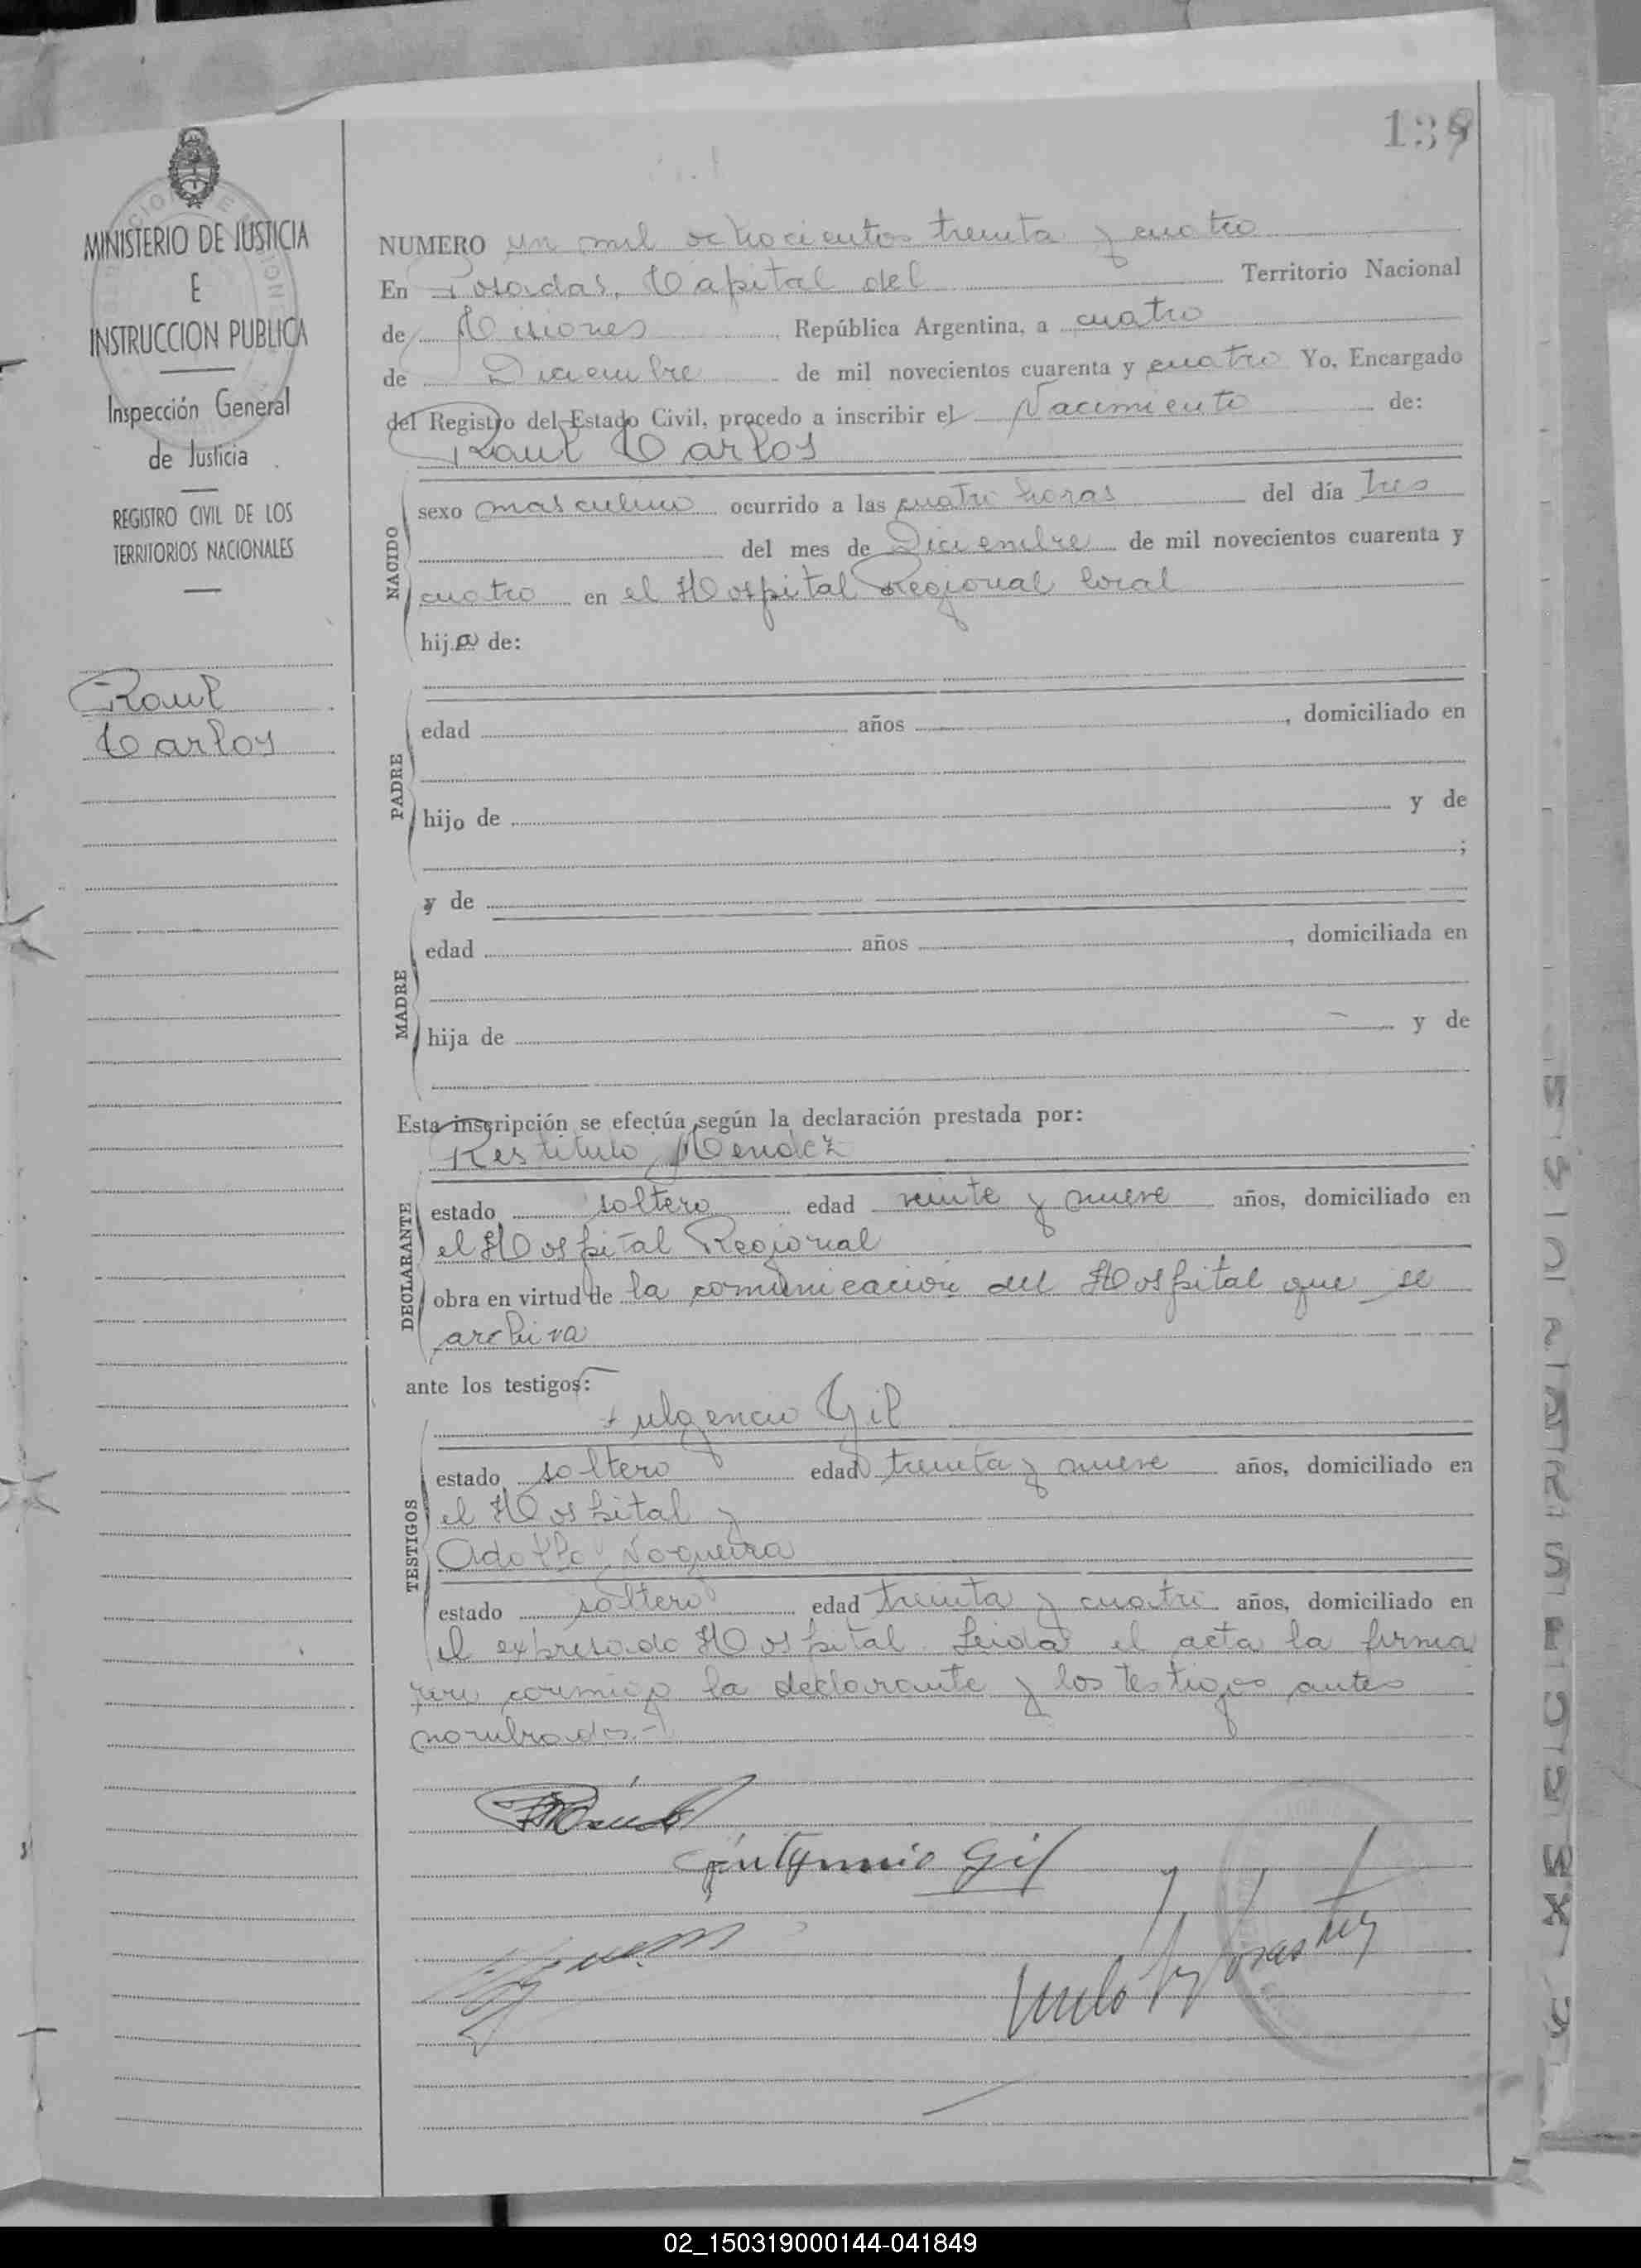 139
MINISTERIO DE JUSTICIA
E
INSTRUCCION PUBLICA
Inspección General
de Justicia
REGISTRO CIVIL DE LOS
TERRITORIOS NACIONALES
Raul
Carlos
NUMERO un mil ochocientos treinta y cuatro
En Posadas, Capital del Territorio Nacional
de Misiones, República Argentina, a cuatro
de Diciembre de mil novecientos cuarenta y cuatro Yo, Encargado
del Registro del Estado Civil, procedo a inscribir el Nacimiento de:
Raul Carlos
NACIDO
sexo masculino ocurrido a las cuatro horas del día tres
del mes de Diciembre de mil novecientos cuarenta y
cuatro en el Hospital Regional local
hij.o de:
PADRE
edad años , domiciliado en
hijo de y de
;
y de
MADRE
edad años , domiciliada en
hija de y de
Esta inscripción se efectúa según la declaración prestada por:
Restituto Mendez
DECLARANTE
estado soltero edad veinte y nueve años, domiciliado en
el Hospital Regional
obra en virtud de la comunicación del Hospital que se
archiva
ante los testigos:
Fulgencio Gil
TESTIGOS
estado soltero edad treinta y nueve años, domiciliado en
el Hospital y
Adolfo Nogueira
estado soltero edad treinta y cuatro años, domiciliado en
el expresado Hospital. Leida el acta la firma
conmigo la declarante y los testigos antes
nombrados.-
Gil
02_150319000144-041849